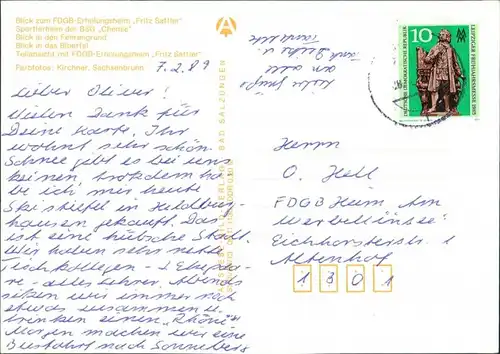 Blick zum FDGB-Erholungsheim „Fritz Sattler"
Sportlerheime der BSG „Chemie"
Blick in den Fehrengrund
Blick in das Bibertal
Teilansicht mit FDGB-Erholungsheim „Fritz Sattler"
Farbfotos: Kirchner, Sachsenbrunn
7.2.89
Lieber Oliver!
Vielen Dank für
Deine Karte. Ihr
wohnt sehr schön.
Schnee gibt es bei uns
keinen, trotzdem ha-
be ich mir heute
Skistiefel in Hildburg-
hausen gekauft. Das
ist eine hübsche Stadt.
Wir haben sehr nette
Tischkollegen - 2 Ehepaa-
re - alles Lehrer. Abends
sitzen wir immer noch
etwas zusammen u.
trinken einen „Rhöni".
Morgen machen wir eine
Busfahrt nach Sonneberg
Viele Grüße
an alle
BAD SALZUNGEN
10
DEUTSCHE DEMOKRATISCHE REPUBLIK
LEIPZIGER FRÜHJAHRSMESSE 1985
Herrn
O. Hell
FDGB Heim Am
Werbellinsee
Eichhorsterstr. 1
Altenhof
1301